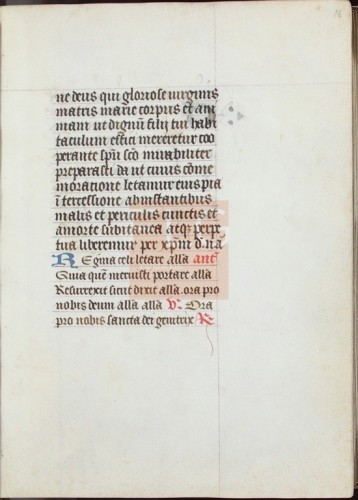 16
ne deus qui gloriose virginis
matris marie corpus et ani
mam ut dignū filii tui habi
taculum effici mereretur coo
perante spū sc̄o mirabiliter
preparasti da ut cuius cōme
moratione letamur eius pia
ītercessione ab instantibus
malis et periculis cunctis et
a morte subitanea atqꝫ perpe
tua liberemur per xp̄m d. n. a
Regina celi letare alla ant̄
Quia quē meruisti portare alla
Resurrexit sicut dixit alla. ora pro
nobis deum alla alla V̄. Ora
pro nobis sancta dei genitrix R̄